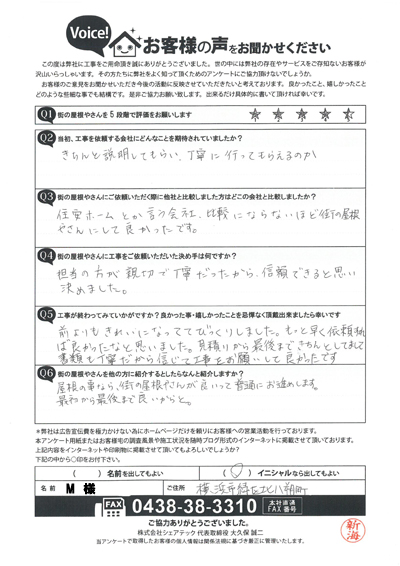 Voice!
お客様の声をお聞かせください
この度は弊社に工事をご用命頂き誠にありがとうございました。世の中には弊社の存在やサービスをご存知ないお客様が
沢山いらっしゃいます。その方たちに弊社をよく知って頂くためのアンケートにご協力頂けないでしょうか。
お客様のご意見をお聞かせいただき今後の活動に反映させていただきたいと考えております。良かったこと、嬉しかったこと
どのような些細な事でも結構です。是非ご協力お願い致します。出来るだけ具体的に書いて頂ければ幸いです。
Q1 街の屋根やさんを5段階で評価をお願いします
Q2 当初、工事を依頼する会社にどんなことを期待されていましたか?
きちんと説明してもらい、丁寧に行ってもらえるのか
Q3 街の屋根やさんにご依頼いただく際に他社と比較しました方はどこの会社と比較しましたか?
住宅ホームとか言う会社、比較にならないほど街の屋根
やさんにして良かったです。
Q4 街の屋根やさんに工事をご依頼いただいた決め手は何ですか?
担当の方が親切で丁寧だったから、信頼できると思い
決めました。
Q5 工事が終わってみていかがですか?良かった事・嬉しかったことを忌憚なく頂戴出来ましたら幸いです
前よりもきれいになっててびっくりしました。もっと早く依頼すれ
ば良かったなと思いました。見積りから最後まできちんとしてまして
書類も丁寧だから信じて工事をお願いして良かったです
Q6 街の屋根やさんを他の方に紹介するとしたらなんと紹介しますか?
屋根の事なら、街の屋根やさんが良いって普通にお進めします。
最初から最後まで良いからと。
*弊社は広告宣伝費を極力かけない為にホームページだけを頼りにお客様への営業活動を行っております。
本アンケート用紙またはお客様宅の調査風景や施工状況を随時ブログ形式のインターネットに掲載させて頂いております。
上記内容をインターネットや印刷物に掲載させて頂いてもよろしいでしょうか?
下記の中から○印をお付け下さい。
( )名前を出してもよい
(○)イニシャルなら出してもよい
名前 M 様
ご住所 横浜市緑区北八朔町
FAX 0438-38-3310 本社直通 FAX番号
ご協力ありがとうございました。
株式会社シェアテック 代表取締役 大久保 誠二
当アンケートで取得したお客様の個人情報は関係法規に基づき厳正に管理いたします。
新海